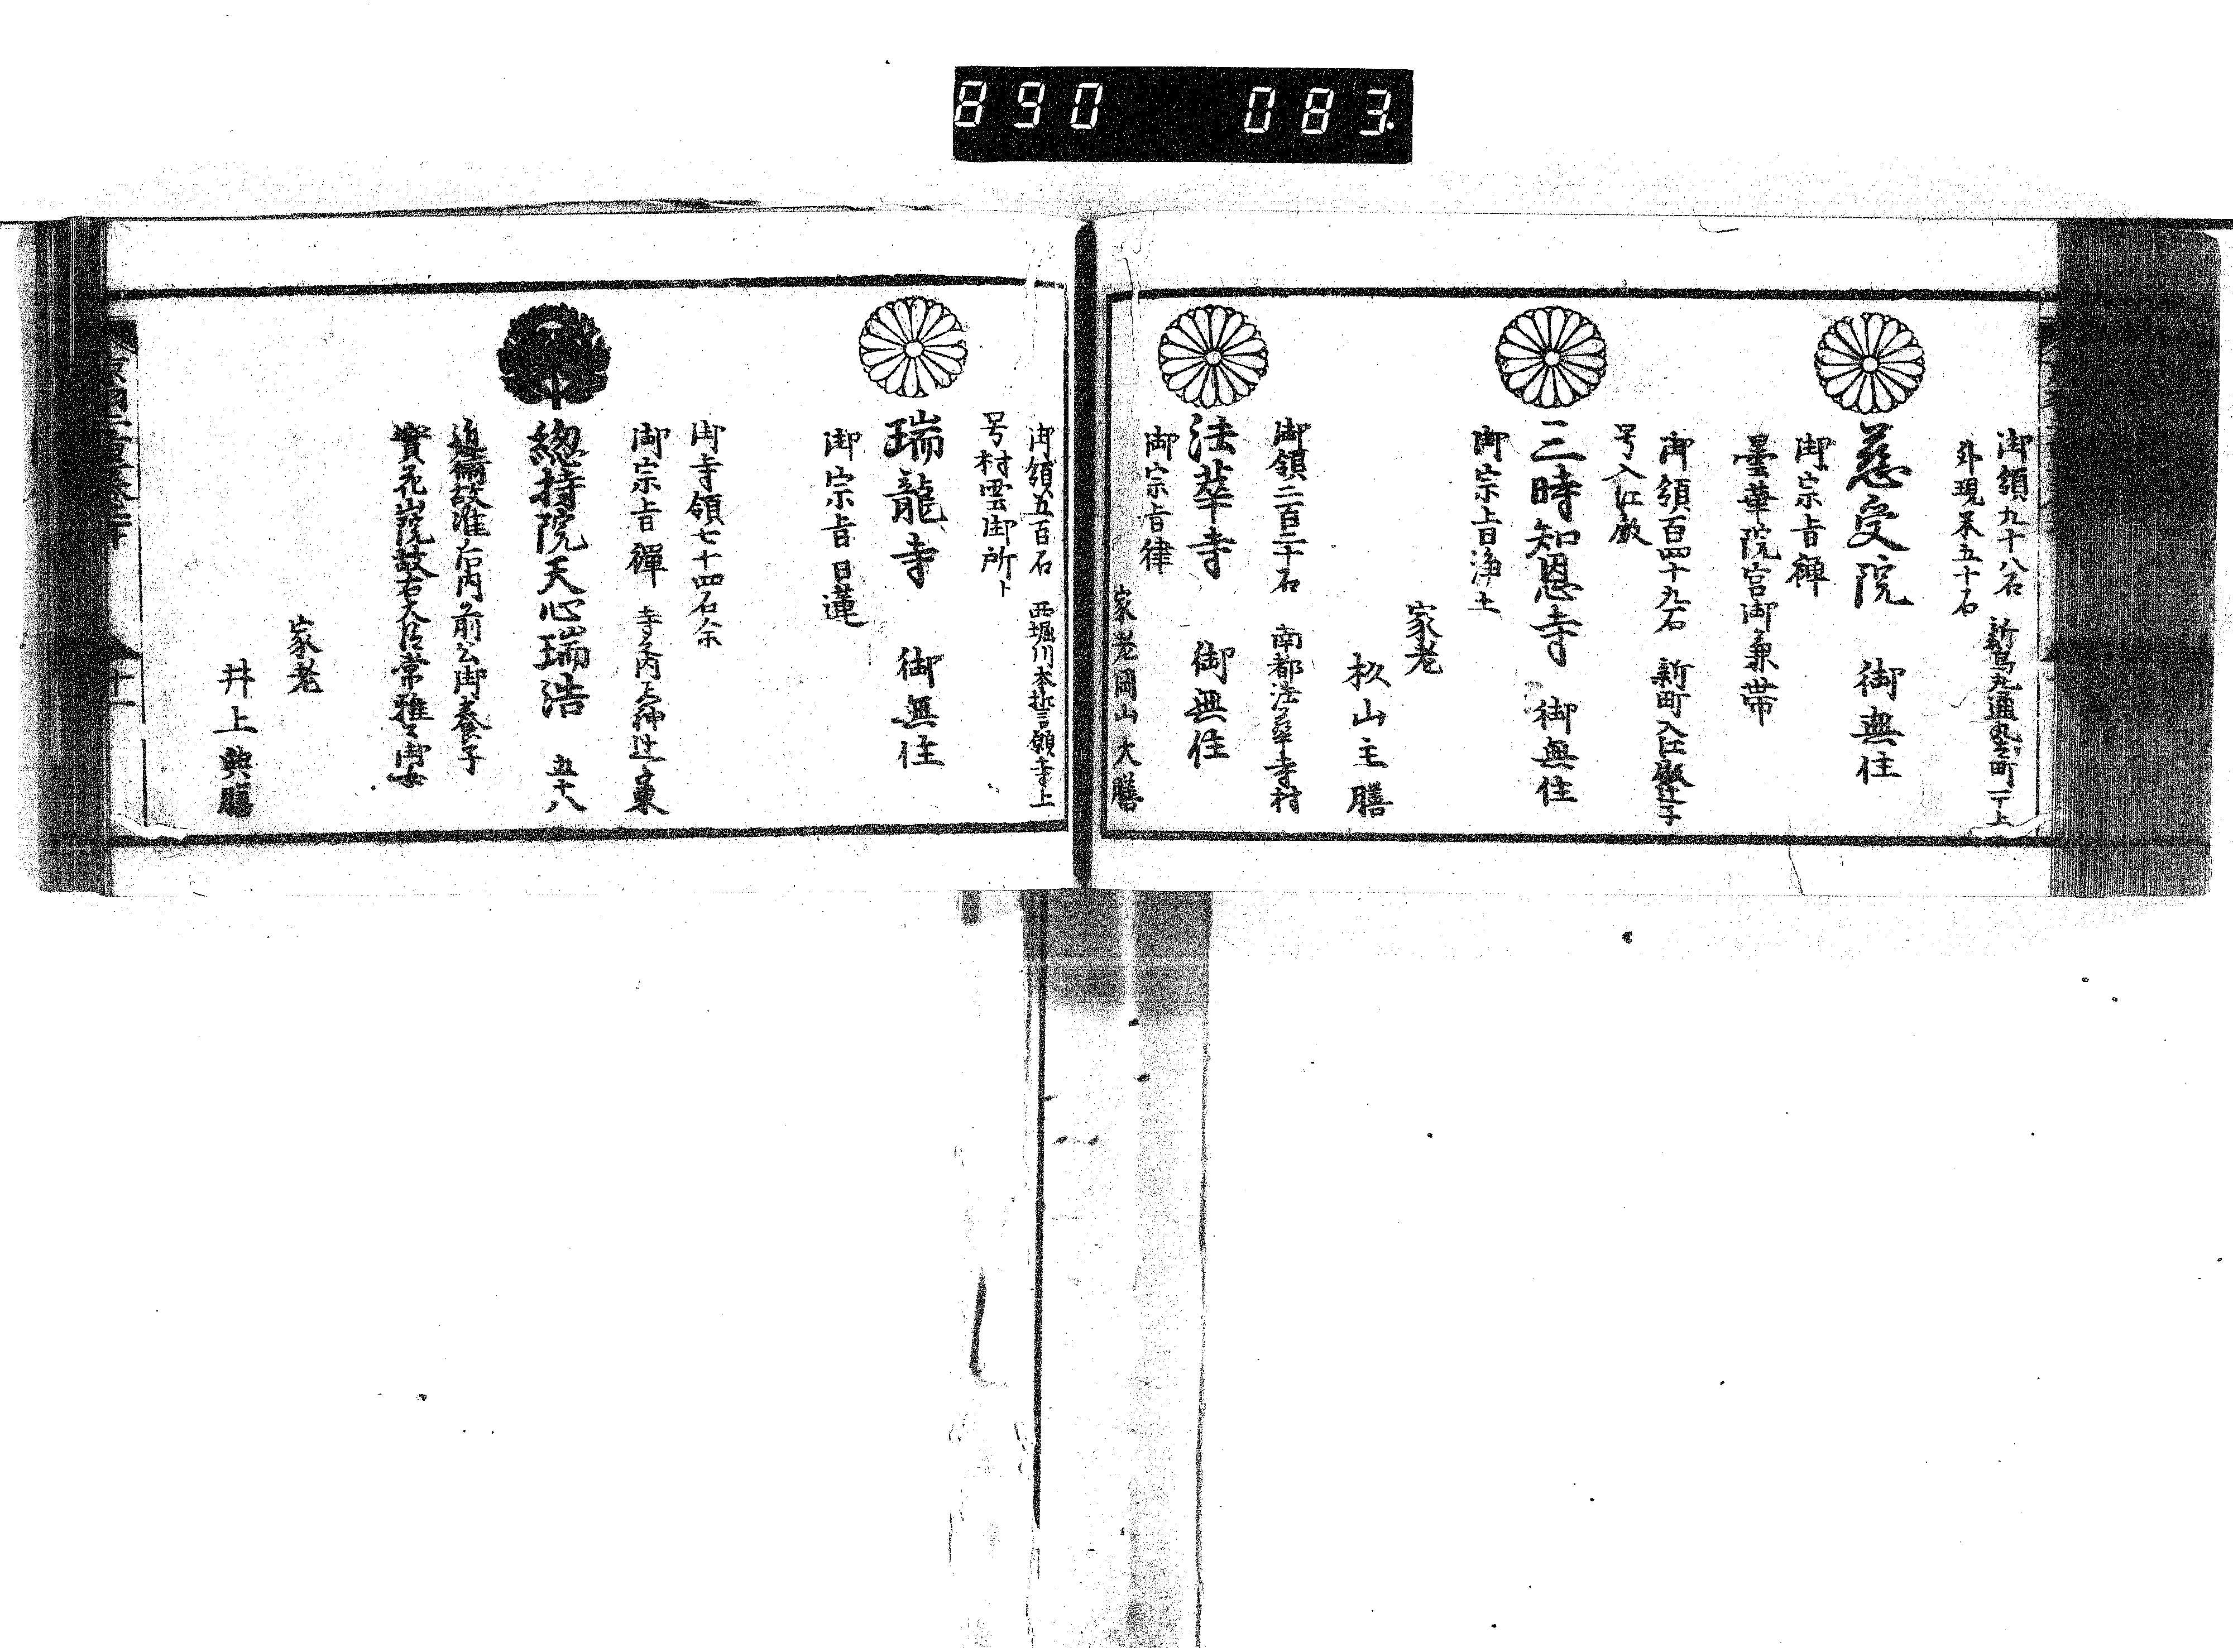 890 083
御領九十八石 新烏丸通丸太町下上
外現米五十石
慈受院 御無住
御宗旨禅
曇華院宮御兼帯
御領百四十九石 新町入江殿辻子
号入江殿
三時知恩寺 御無住
御宗旨浄土
家老
松山主膳
御領二百二十石 南都法華寺村
法華寺 御無住
御宗旨律
家老岡山大膳
御領五百石 西堀川本誓願寺上
号村雲御所ト
瑞龍寺 御無住
御宗旨日蓮
御寺領七十四石余
御宗旨禪 寺之内上神辻東
總持院天心瑞浩 五十八
准后内前公御養子
實花山院故右大臣常雅公御女
家老
井上典膳